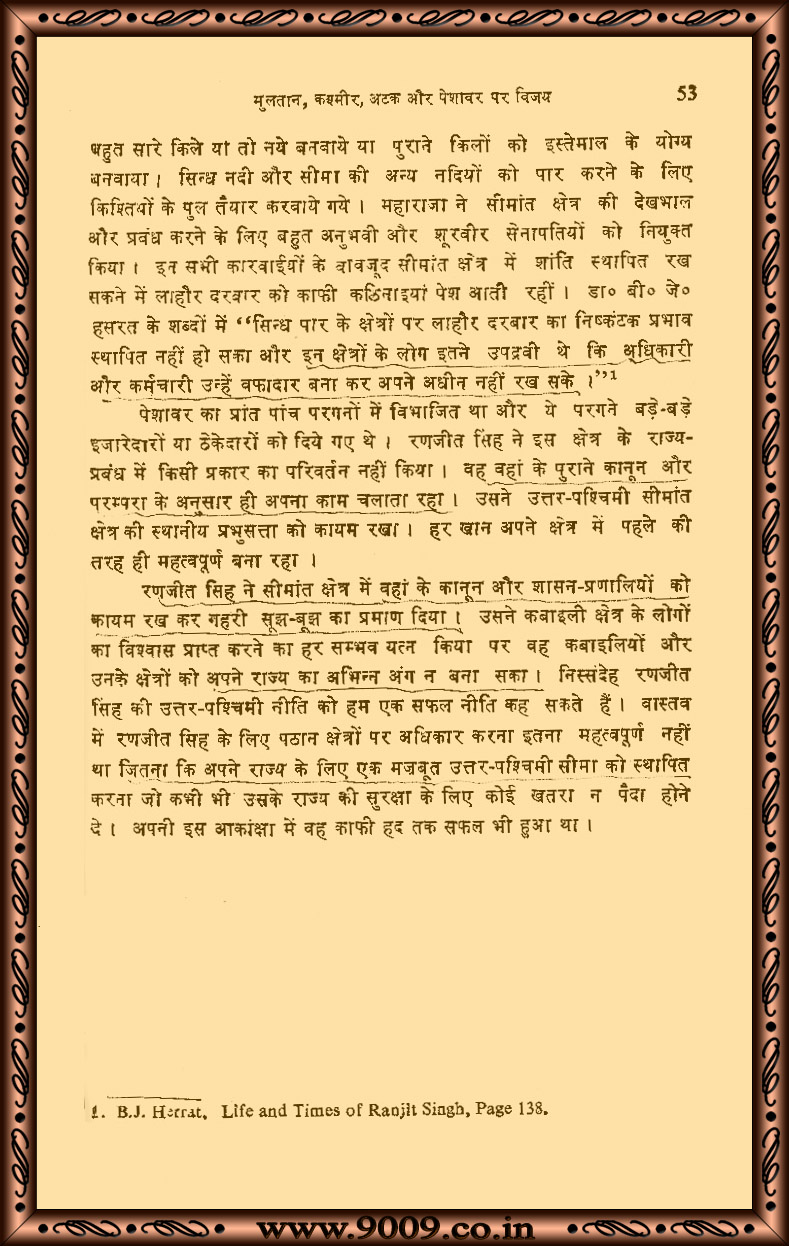 मुलतान, कश्मीर, अटक और पेशावर पर विजय 53
बहुत सारे किले या तो नये बनवाये या पुराने किलों को इस्तेमाल के योग्य
बनवाया। सिन्ध नदी और सीमा की अन्य नदियों को पार करने के लिए
किश्तियों के पुल तैयार करवाये गये। महाराजा ने सीमांत क्षेत्र की देखभाल
और प्रवंध करने के लिए बहुत अनुभवी और शूरवीर सेनापतियों को नियुक्त
किया। इन सभी कारवाईयों के बावजूद सीमांत क्षेत्र में शांति स्थापित रख
सकने में लाहौर दरबार को काफी कठिनाइयां पेश आती रहीं। डा० बी० जे०
हसरत के शब्दों में “सिन्ध पार के क्षेत्रों पर लाहौर दरबार का निष्कंटक प्रभाव
स्थापित नहीं हो सका और इन क्षेत्रों के लोग इतने उपद्रवी थे कि अधिकारी
और कर्मचारी उन्हें वफादार बना कर अपने अधीन नहीं रख सके।”1
पेशावर का प्रांत पांच परगनों में विभाजित था और ये परगने बड़े-बड़े
इजारेदारों या ठेकेदारों को दिये गए थे। रणजीत सिंह ने इस क्षेत्र के राज्य-
प्रबंध में किसी प्रकार का परिवर्तन नहीं किया। वह वहां के पुराने कानून और
परम्परा के अनुसार ही अपना काम चलाता रहा। उसने उत्तर-पश्चिमी सीमांत
क्षेत्र की स्थानीय प्रभुसत्ता को कायम रखा। हर खान अपने क्षेत्र में पहले की
तरह ही महत्वपूर्ण बना रहा।
रणजीत सिंह ने सीमांत क्षेत्र में वहां के कानून और शासन-प्रणालियों को
कायम रख कर गहरी सूझ-बूझ का प्रमाण दिया। उसने कबाइली क्षेत्र के लोगों
का विश्वास प्राप्त करने का हर सम्भव यत्न किया पर वह कबाइलियों और
उनके क्षेत्रों को अपने राज्य का अभिन्न अंग न बना सका। निस्संदेह रणजीत
सिंह की उत्तर-पश्चिमी नीति को हम एक सफल नीति कह सकते हैं। वास्तव
में रणजीत सिंह के लिए पठान क्षेत्रों पर अधिकार करना इतना महत्वपूर्ण नहीं
था जितना कि अपने राज्य के लिए एक मजबूत उत्तर-पश्चिमी सीमा को स्थापित
करना जो कभी भी उसके राज्य की सुरक्षा के लिए कोई खतरा न पैदा होने
दे। अपनी इस आकांक्षा में वह काफी हद तक सफल भी हुआ था।
1. B.J. Life and Times of Ranjit Singh, Page 138.
www.9009.co.in